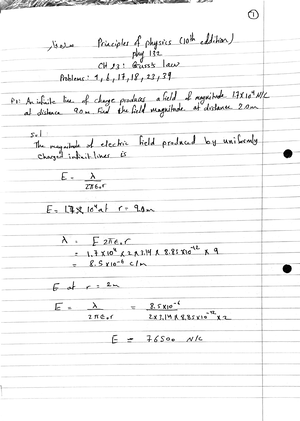 1
Principles of physics (10th eddition)
phy 182
CH 23: Gauss's law
Problems: 1, 6, 17, 18, 23, 39
P1: An infinite line of charge produces a field of magnitude 1.7 x 10⁴ N/C
at distance 9.0 m Find the field magnitude at distance 2.0m
Sol
The magnitude of electric field produced by uniformly
charged infinit lines is
E = λ / 2πε₀r
E = 1.7 x 10⁴ at r = 9.0m
λ = E 2πε₀r
= 1.7 x 10⁴ x 2 x 3.14 x 8.85 x 10⁻¹² x 9
= 8.5 x 10⁻⁶ c/m
E at r = 2m
E = λ / 2πε₀r = 8.5 x 10⁻⁶ / 2 x 3.14 x 8.85 x 10⁻¹² x 2
E = 76500 N/c